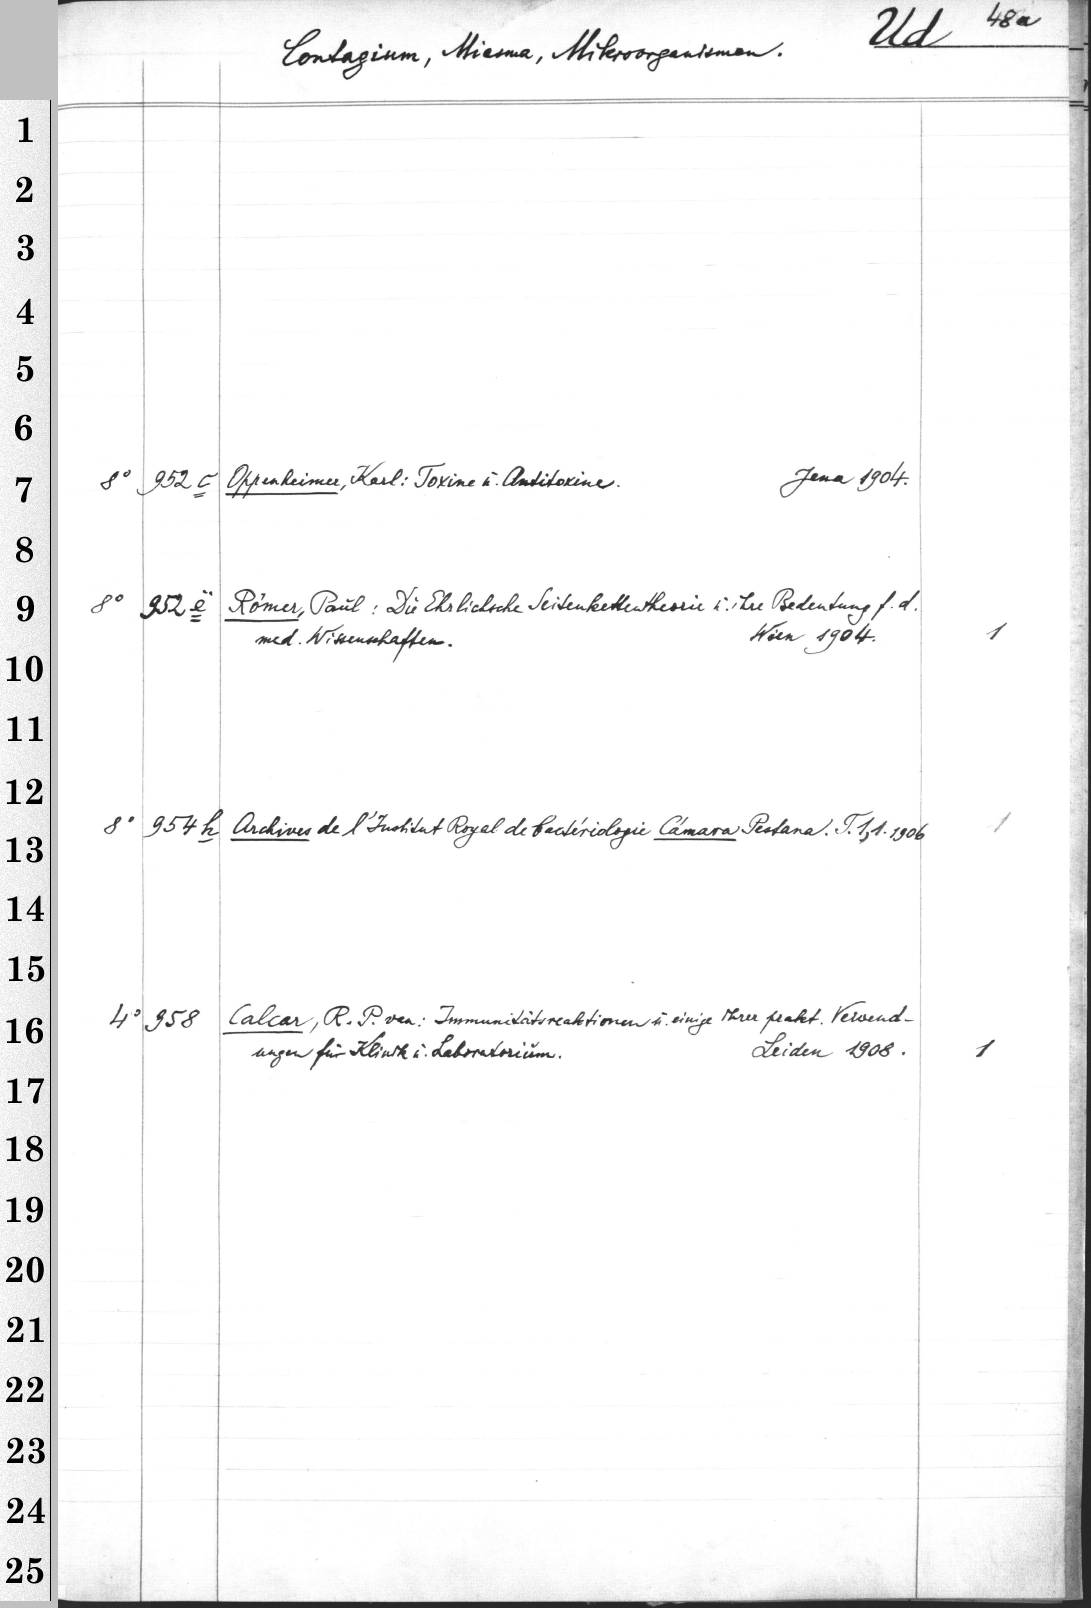 Ud 48a
Contagium, Miasma, Mikroorganismen.
1
2
3
4
5
6
7 8° 952 c Oppenheimer, Karl: Toxine u. Antitoxine. Jena 1904.
8
9 8° 952 ë Römer, Paul: Die Ehrlichsche Seitenkettentheorie u. ihre Bedeutung f. d.
med. Wissenschaften. Wien 1904. 1
10
11
12
13 8° 954 h Archives de l'Institut Royal de bactériologie Cámara Pestana. T. 1,1. 1906 1
14
15
16 4° 958 Calcar, R. P. van: Immunitätsreaktionen u. einige ihrer prakt. Verwend-
ungen für Klinik u. Laboratorium. Leiden 1908. 1
17
18
19
20
21
22
23
24
25